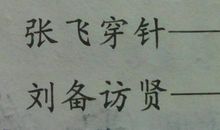 张飞穿针——
刘备访贤——